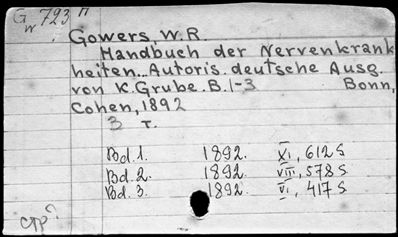 G 723 П
W
Gowers, W. R.
Handbuch der Nervenkrank
heiten... Autoris. deutsche Ausg.
von K. Grube. B. 1-3 Bonn,
Cohen, 1892
3 т.
Bd. 1. 1892. XI, 612 S
Bd. 2. 1892. VIII, 578 S
Bd. 3. 1892. VI, 417 S